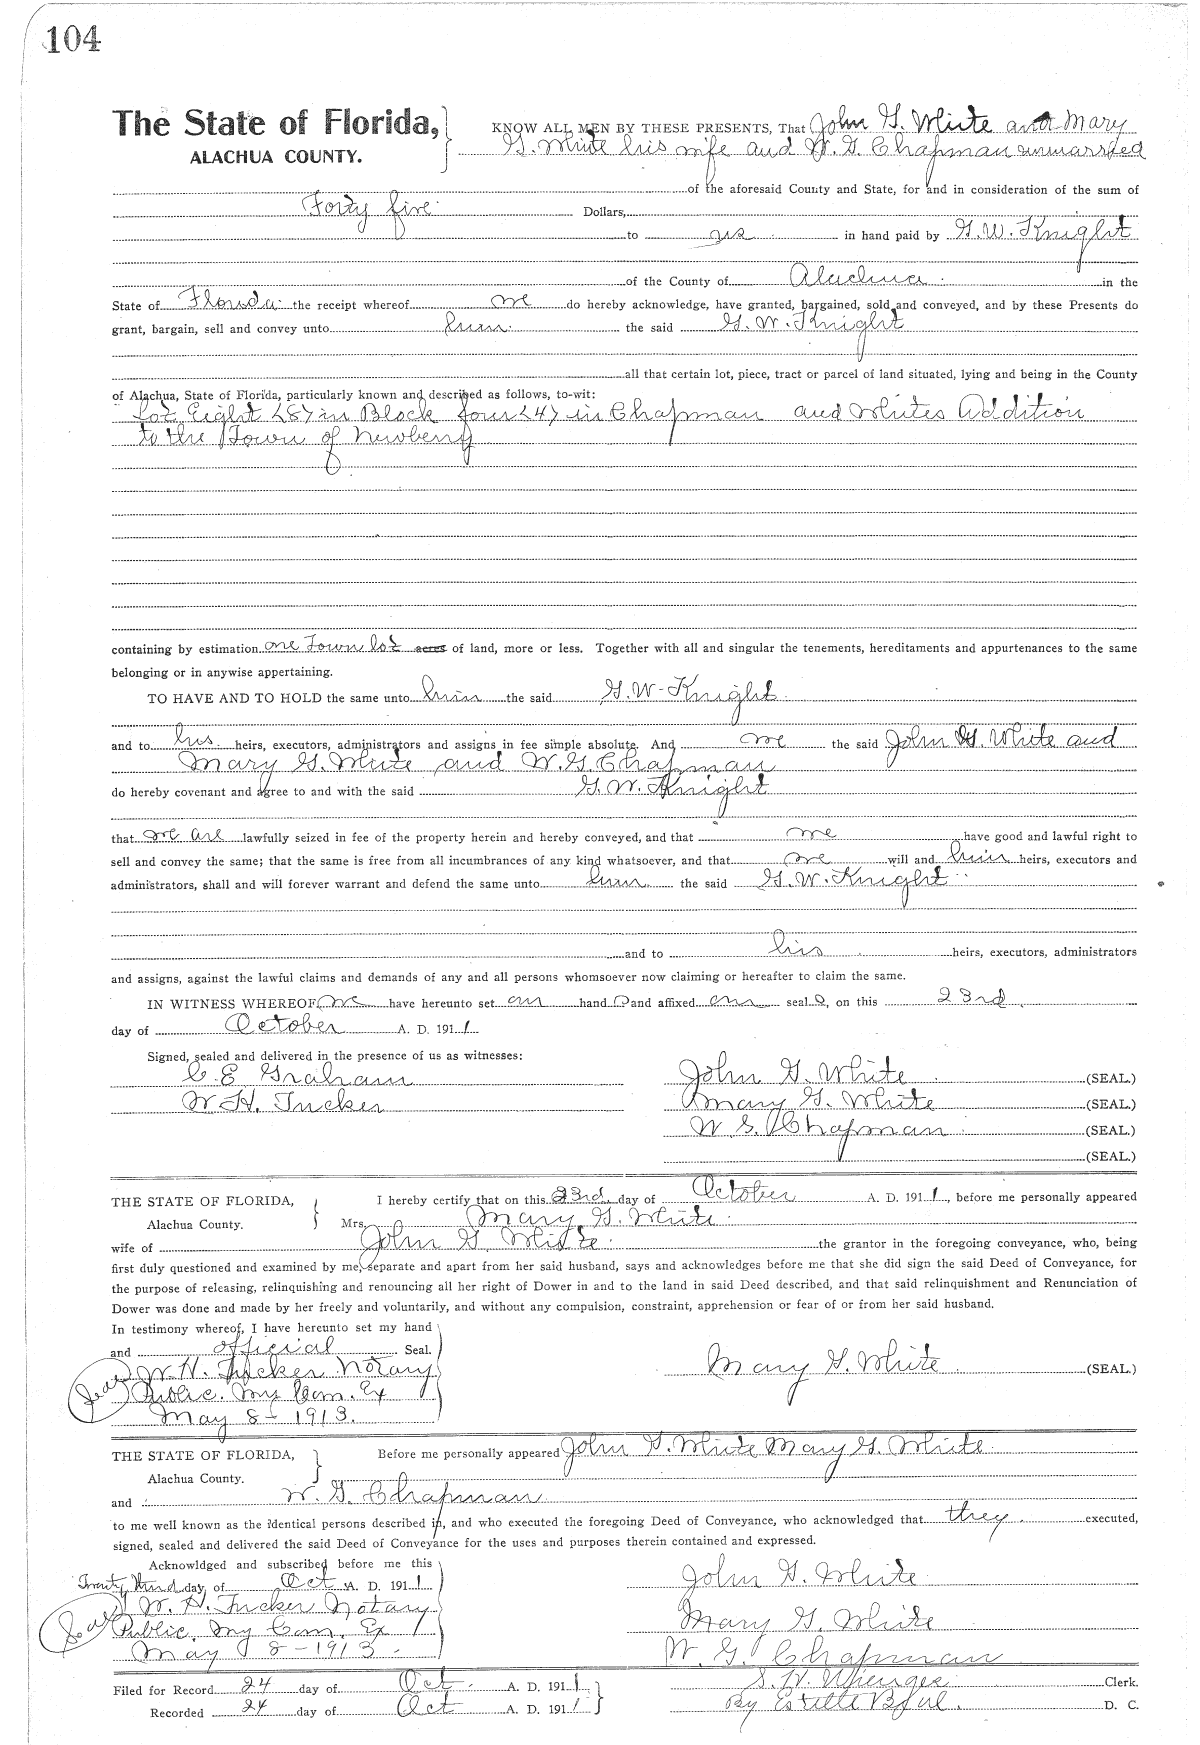 104
The State of Florida,
ALACHUA COUNTY.
KNOW ALL MEN BY THESE PRESENTS, That John G. White and Mary
G. White his wife and W. G. Chapman unmarried
of the aforesaid County and State, for and in consideration of the sum of
Forty five Dollars,
to us in hand paid by G. W. Knight
of the County of Alachua in the
State of Florida the receipt whereof we do hereby acknowledge, have granted, bargained, sold and conveyed, and by these Presents do
grant, bargain, sell and convey unto him the said G. W. Knight
all that certain lot, piece, tract or parcel of land situated, lying and being in the County
of Alachua, State of Florida, particularly known and described as follows, to-wit:
Lot Eight <8> in Block four <4> in Chapman and Whites Addition
to the Town of Newberry
containing by estimation one Town lot acres of land, more or less. Together with all and singular the tenements, hereditaments and appurtenances to the same
belonging or in anywise appertaining.
TO HAVE AND TO HOLD the same unto him the said G. W. Knight
and to his heirs, executors, administrators and assigns in fee simple absolute. And we the said John G. White and
Mary G. White and W. G. Chapman
do hereby covenant and agree to and with the said G. W. Knight
that we are lawfully seized in fee of the property herein and hereby conveyed, and that we have good and lawful right to
sell and convey the same; that the same is free from all incumbrances of any kind whatsoever, and that we will and him heirs, executors and
administrators, shall and will forever warrant and defend the same unto him the said G. W. Knight
and to his heirs, executors, administrators
and assigns, against the lawful claims and demands of any and all persons whomsoever now claiming or hereafter to claim the same.
IN WITNESS WHEREOF, we have hereunto set our hand s and affixed our seal s, on this 23rd
day of October A. D. 1911
Signed, sealed and delivered in the presence of us as witnesses:
C. E Graham
W H. Tucker
John G. White (SEAL.)
Mary G. White (SEAL.)
W. G. Chapman (SEAL.)
(SEAL.)
THE STATE OF FLORIDA,
Alachua County.
I hereby certify that on this 23rd day of October A. D. 1911, before me personally appeared
Mrs. Mary G. White
wife of John G. White the grantor in the foregoing conveyance, who, being
first duly questioned and examined by me, separate and apart from her said husband, says and acknowledges before me that she did sign the said Deed of Conveyance, for
the purpose of releasing, relinquishing and renouncing all her right of Dower in and to the land in said Deed described, and that said relinquishment and Renunciation of
Dower was done and made by her freely and voluntarily, and without any compulsion, constraint, apprehension or fear of or from her said husband.
In testimony whereof, I have hereunto set my hand
and official Seal.
Seal W. H. Tucker Notary
Public. My Com. Ex
May 8 - 1913.
Mary G. White (SEAL)
THE STATE OF FLORIDA,
Alachua County.
Before me personally appeared John G. White Mary G. White
and W. G. Chapman
to me well known as the identical persons described in, and who executed the foregoing Deed of Conveyance, who acknowledged that they executed,
signed, sealed and delivered the said Deed of Conveyance for the uses and purposes therein contained and expressed.
Acknowldged and subscribed before me this
Twenty third day of Oct A. D. 1911
Seal W. H. Tucker Notary
Public. My Com. Ex
May 8 - 1913.
John G. White
Mary G. White
W. G. Chapman
Filed for Record 24 day of Oct. A. D. 1911
Recorded 24 day of Oct A. D. 1911
S. H. Wienges Clerk.
By Estelle D. C.